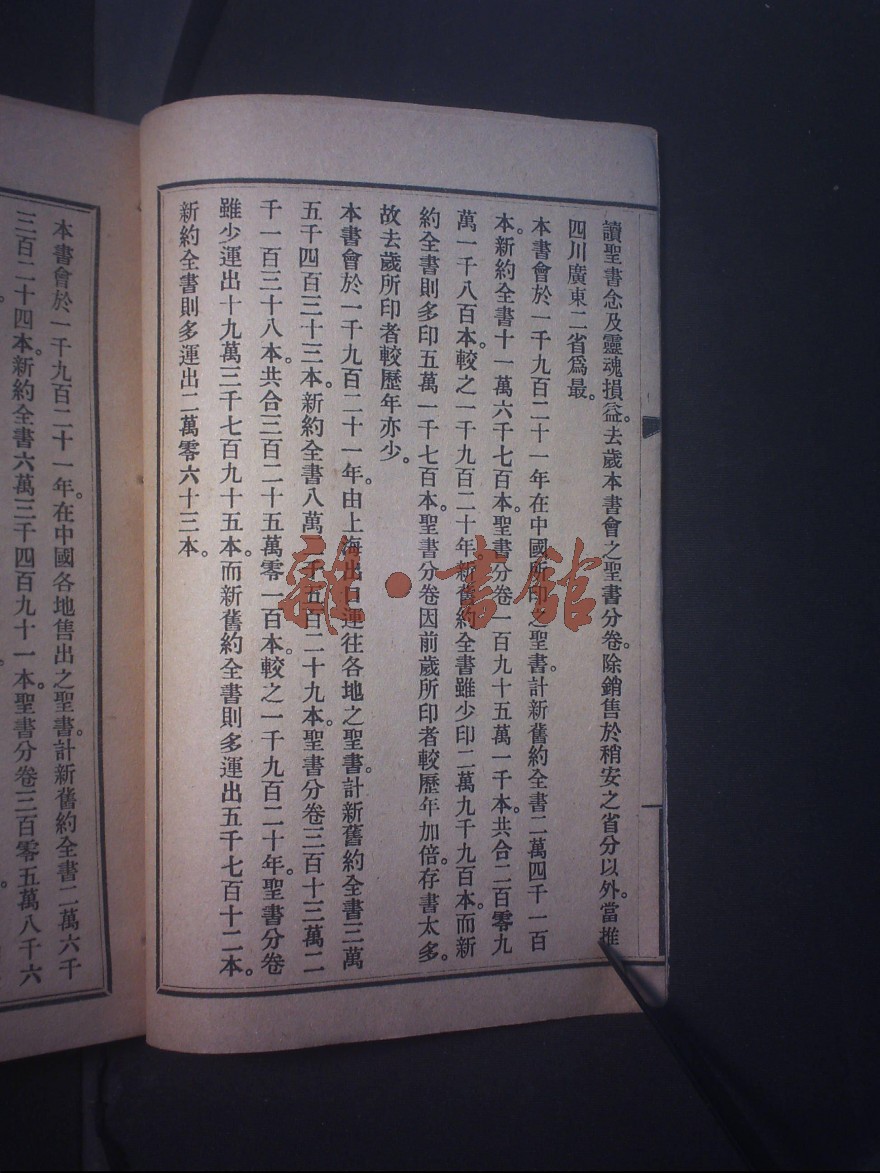 讀聖書念及靈魂損益。去歲本書會之聖書分卷。除銷售於稍安之省分以外。當推
四川廣東二省爲最。
本書會於一千九百二十一年在中國所印之聖書。計新舊約全書二萬四千一百
本。新約全書十一萬六千七百本。聖書分卷一百九十五萬一千本。共合二百零九
萬一千八百本。較之一千九百二十年。新舊約全書雖少印二萬九千九百本。而新
約全書則多印五萬一千七百本。聖書分卷因前歲所印者較歷年加倍。存書太多。
故去歲所印者較歷年亦少。
本書會於一千九百二十一年。由上海出口運往各地之聖書。計新舊約全書三萬
五千四百三十三本。新約全書八萬二千五百二十九本。聖書分卷三百十三萬二
千一百三十八本。共合三百二十五萬零一百本。較之一千九百二十年。聖書分卷
雖少運出十九萬三千七百九十五本。而新舊約全書則多運出五千七百十二本。
新約全書則多運出二萬零六十三本。
本書會於一千九百二十一年。在中國各地售出之聖書。計新舊約全書二萬六千
三百二十四本。新約全書六萬三千四百九十一本。聖書分卷三百零五萬八千六
雜·書館